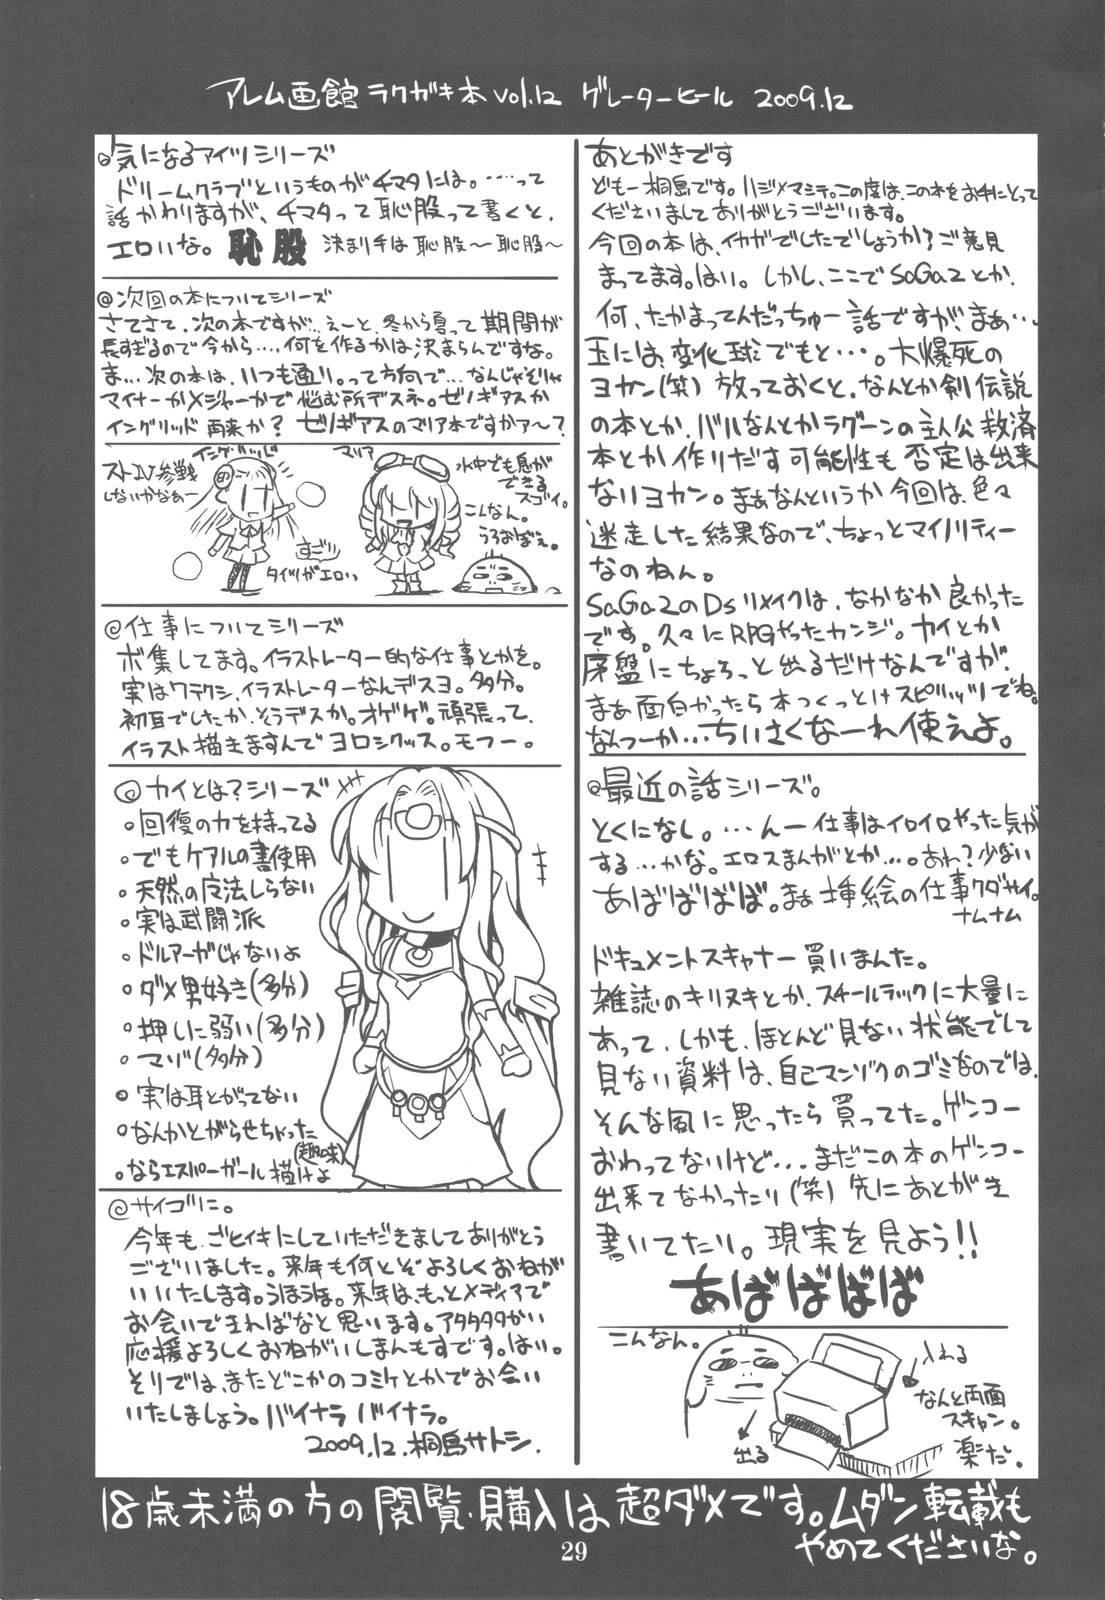 アレム画館 ラクガキ本 vol.12 ゲレーターヒール 2009.12
あとがきです
ども一桐島です。ハジメマシテ。この度は、この本をお手にとって
くださいましてありがとうございます。
今回の本は、イカガでしたでしょうか?ご意見
まってます。はい。しかし、ここでSaGa2とか、
何、たかまってんだっちゅー話ですが、まぁ…
玉には、変化球でもと…。大爆死の
ヨカン(笑)放っておくと、なんとか剣伝説
の本とか、バルなんとかラグーンの主人公救済
本とか作りだす可能性も否定は出来
ないヨカン。まぁなんというか今回は、色々
迷走した結果なので、ちょっとマイノリティー
なのねん。
SaGa2のDsリメイクは、なかなか良かった
です。久々にRPGやったカンジ。カイとか
序盤にちょろっと出るだけなんですが、
まぁ面白かったら本つくっとけスピリッツでね。
なんつーか…ちいさくなーれ使えよ。
@最近の話シリーズ。
とくになし。…んー仕事はイロイロやった気が
する…かな。エロスまんがとか…。あわ?少ない
あばばばば。まぁ挿絵の仕事クダサイ。
ナムナム
ドキュメントスキャナー買いまんた。
雑誌のキリヌキとか、スチールラックに大量に
あって、しかも、ほとんど見ない状態でして
見ない資料は、自己マンゾクのゴミなのでは、
そんな風に思ったら買ってた。ゲンコー
おわってないけど…まだこの本のゲンコー
出来てなかったり(笑)先にあとがき
書いてたり。現実を見よう!!
あばばばば
こんなん。
入れる
なんと両面
スキャン。
楽だ。
出る
@気になるアイツシリーズ
ドリームクラブというものがチマタには。……って
話かわりますが、チマタって恥股って書くと、
エロいな。恥股 決まり手は恥股〜恥股〜
@次回の本についてシリーズ
さてさて、次の本ですが…えーと、冬から夏って期間が
長すぎるので今から…、何を作るかは決まらんですな。
ま…次の本は、いつも通り。って方向で…なんじゃそりゃ
マイナーかメジャーかで悩む所デスネ。ゼノギアスか
イングリッド再来か?ゼノギアスのマリア本ですかァ〜?
イングリッド
ストIV参戦
しないかなぁー
すごい
タイツがエロいっ
マリア
水中でも息が
できる
スゴイ。
こんなん。
うろおぼえ。
@仕事についてシリーズ
ボ集してます。イラストレーター的な仕事とかを。
実はワテクシ、イラストレーターなんデスヨ。多分。
初耳でしたか、そうデスか。オゲゲ。頑張って、
イラスト描きますんでヨロシクッス。モフー。
@カイとは?シリーズ
。回復の力を持ってる
。でもケアルの書使用
。天然の魔法しらない
。実は武闘派
。ドルアーガじゃないよ
。ダメ男好き(多分)
。押しに弱い(多分)
。マゾ(多分)
。実は耳とがってない
。なんかとがらせちゃった
(趣味)
。ならエスパーガール描けよ
@サイゴに。
今年も、ごヒイキにしていただきましてありがとう
ございました。来年も何とぞよろしくおねがい
いいたします。うほうほ。来年は、もっとメディアで
お会いできればなと思います。アタタタタかい
応援よろしくおねがいしまんもすです。はい。
そりでは、またどこかのコミケとかでお会い
いたしましょう。バイナラ バイナラ。
2009.12.桐島サトシ.
18歳未満の方の閲覧・購入は超ダメです。ムダン転載も
やめてくださいな。
29